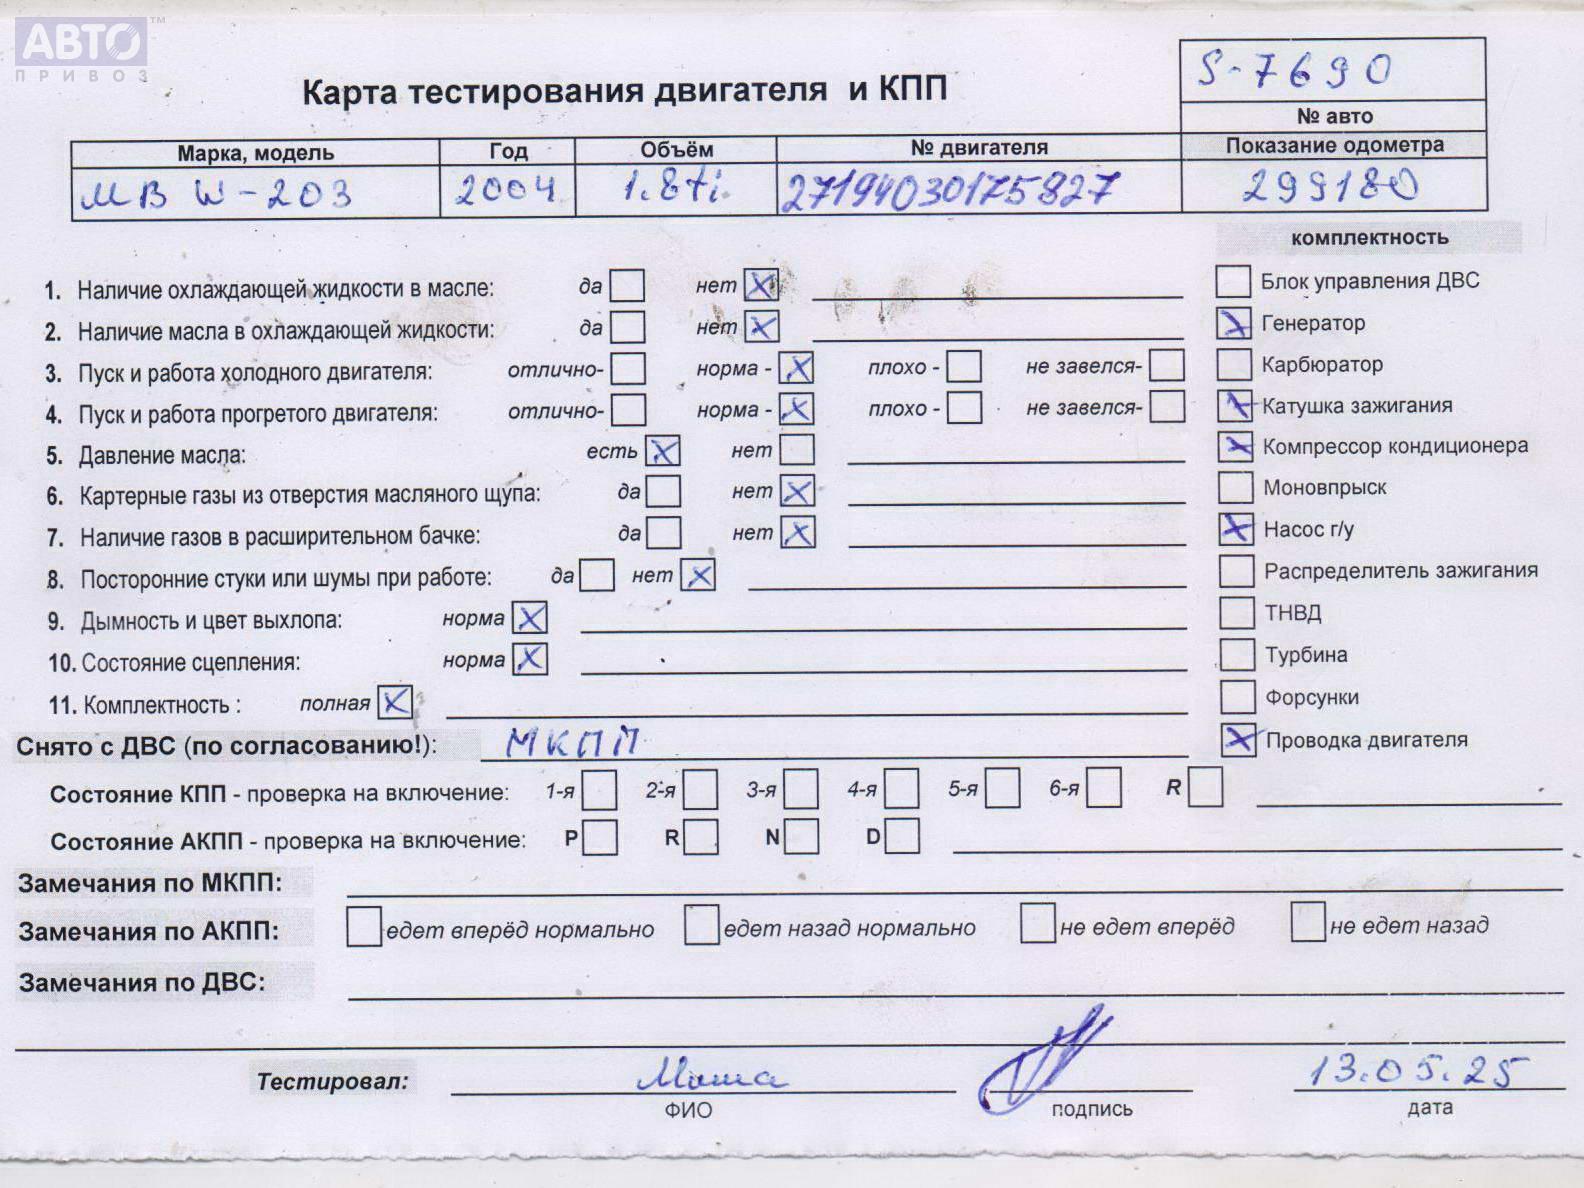 АВТО™
ПРИВОЗ
S-7690
Карта тестирования двигателя и КПП
№ авто
Марка, модель Год Объём № двигателя Показание одометра
МВ W-203 2004 1.8ti. 27194030175827 299180
комплектность
1. Наличие охлаждающей жидкости в масле: да нет Блок управления ДВС
2. Наличие масла в охлаждающей жидкости: да нет Генератор
3. Пуск и работа холодного двигателя: отлично- норма - плохо - не завелся- Карбюратор
4. Пуск и работа прогретого двигателя: отлично- норма - плохо - не завелся- Катушка зажигания
5. Давление масла: есть нет Компрессор кондиционера
6. Картерные газы из отверстия масляного щупа: да нет Моновпрыск
7. Наличие газов в расширительном бачке: да нет Насос г/у
8. Посторонние стуки или шумы при работе: да нет Распределитель зажигания
9. Дымность и цвет выхлопа: норма ТНВД
10. Состояние сцепления: норма Турбина
11. Комплектность : полная Форсунки
Снято с ДВС (по согласованию!): МКПП Проводка двигателя
Состояние КПП - проверка на включение: 1-я 2-я 3-я 4-я 5-я 6-я R
Состояние АКПП - проверка на включение: P R N D
Замечания по МКПП:
Замечания по АКПП: едет вперёд нормально едет назад нормально не едет вперёд не едет назад
Замечания по ДВС:
Тестировал: Миша 13.05.25
ФИО подпись дата